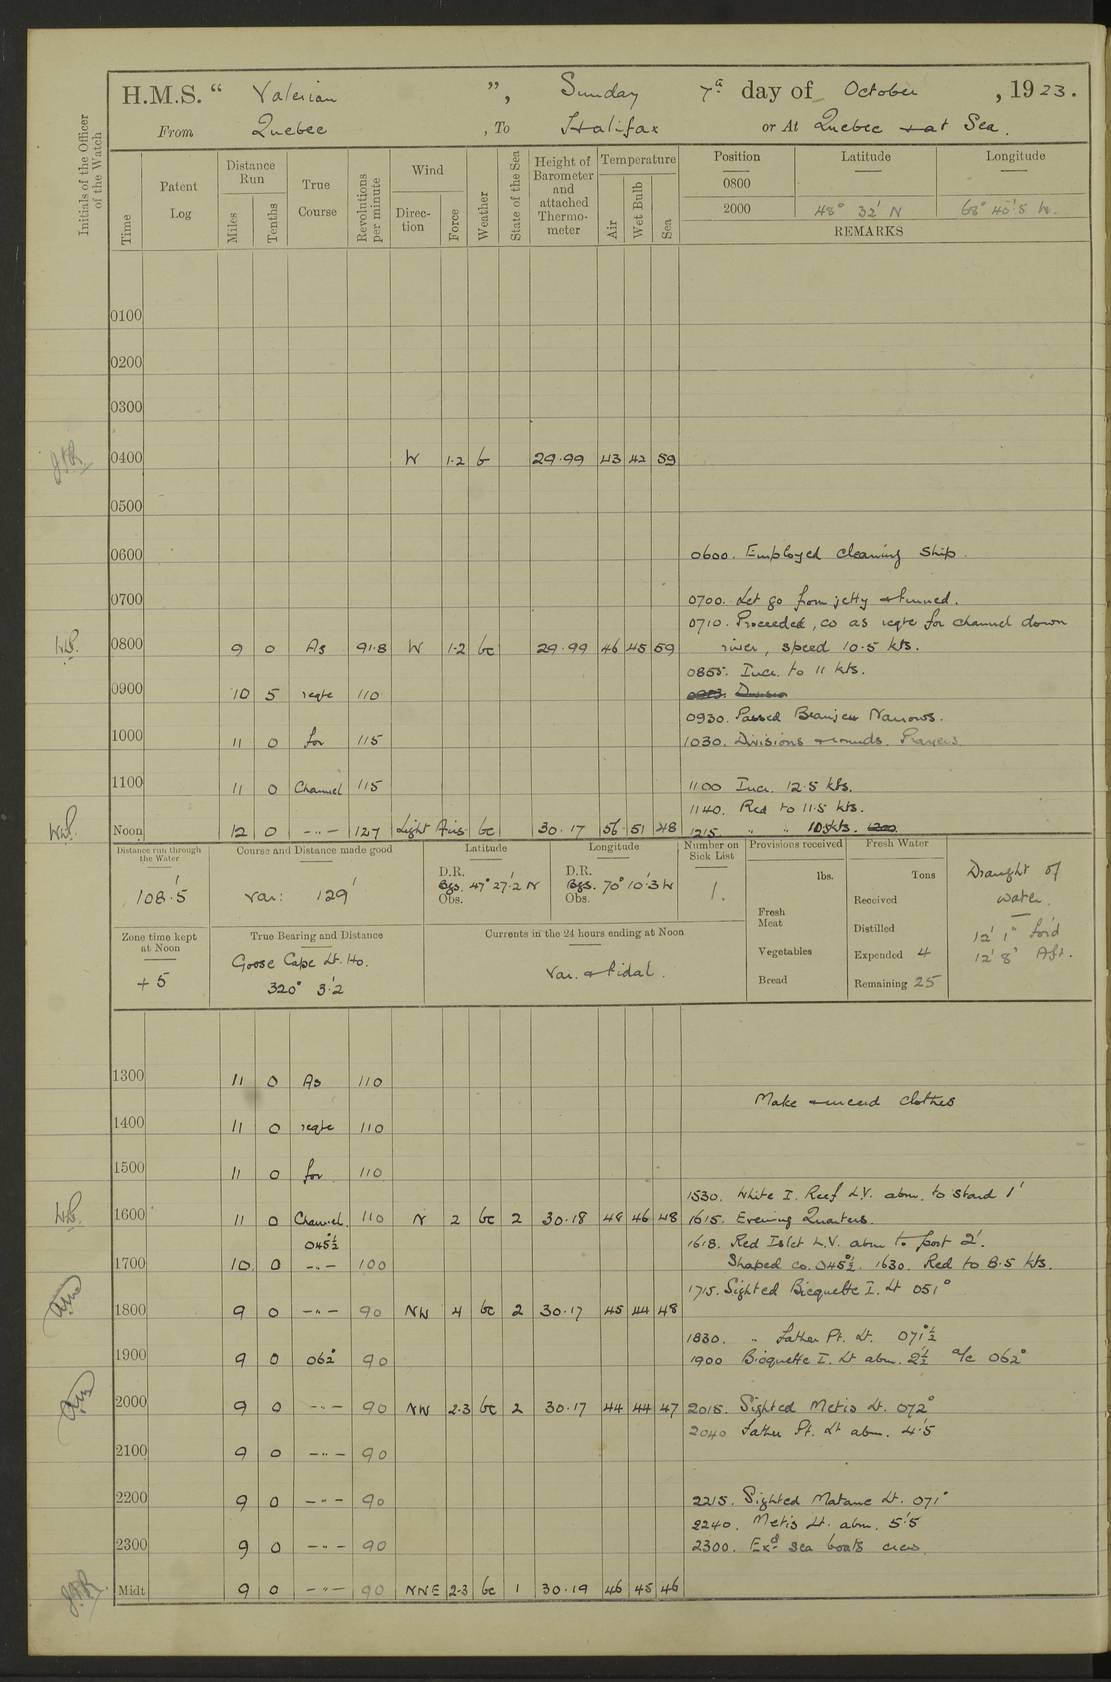 H.M.S. “ Valerian ”, Sunday 7th day of October , 1923.
From Quebec , To Halifax or At Quebec & at Sea.
Initials of the Officer of the Watch
Time Patent Log Distance Run Miles Tenths True Course Revolutions per minute Wind Direction Force Weather State of the Sea Height of Barometer and attached Thermometer Temperature Air Wet Bulb Sea
Position Latitude Longitude
0800
2000 48° 32' N 68° 45'.5 W.
REMARKS
0100
0200
0300
0400 W 1·2 b 29·99 43 42 59
0500
0600 0600. Employed cleaning ship.
0700 0700. Let go from jetty & turned.
0710. Proceeded, co as reqte for channel down
0800 9 0 As 91·8 W 1·2 bc 29·99 46 45 59 river, speed 10·5 kts.
0855. Incr. to 11 kts.
0900 10 5 reqte 110
0930. Passed Beaujeu Narrows.
1000 11 0 for 115 1030. Divisions & rounds. Prayers
1100 11 0 Channel 115 1100 Incr. 12·5 kts.
1140. Red to 11·5 kts.
Noon 12 0 -"- 127 Light Airs bc 30·17 56 51 48 1215. " " 10.5 kts. 1200
Distance run through the Water
108·5'
Course and Distance made good
Var: 129'
Latitude
D.R.
Bgs. 47° 27'·2 N
Obs.
Longitude
D.R.
Bgs. 70° 10'·3 W
Obs.
Number on Sick List
1.
Provisions received
lbs.
Fresh Meat
Vegetables
Bread
Fresh Water
Tons
Received
Distilled
Expended 4
Remaining 25
Draught of
water.
12' 1" for'd
12' 8" Aft.
Zone time kept at Noon
+5
True Bearing and Distance
Goose Cape Lt. Ho.
320° 3'.2
Currents in the 24 hours ending at Noon
Var. & tidal.
1300 11 0 As 110
Make & mend clothes
1400 11 0 reqte 110
1500 11 0 for 110
1530. White I. Reef L.V. abm. to starbd 1'
1600 11 0 Channel. 110 N 2 bc 2 30·18 48 46 48 1615. Evening Quarters.
045°½ 1618. Red Islet L.V. abm to port 2'.
1700 10 0 -"- 100 Shaped co. 045°½. 1630. Red to 8·5 kts.
1715. Sighted Bicquette I. Lt 051°
1800 9 0 -"- 90 NW 4 bc 2 30·17 45 44 48
1830. " Father Pt. Lt. 071°½
1900 9 0 062° 90 1900 Bicquette I. Lt abm. 2'½ a/c 062°
2000 9 0 -"- 90 NW 2·3 bc 2 30·17 44 44 47 2015. Sighted Metis Lt. 072°
2040 Father Pt. Lt abm. 4'·5
2100 9 0 -"- 90
2200 9 0 -"- 90 2215. Sighted Matane Lt. 071°
2240. Metis Lt. abm. 5'·5
2300 9 0 -"- 90 2300. Exd sea boats crew.
Midt 9 0 -"- 90 NNE 2·3 bc 1 30·19 46 45 46